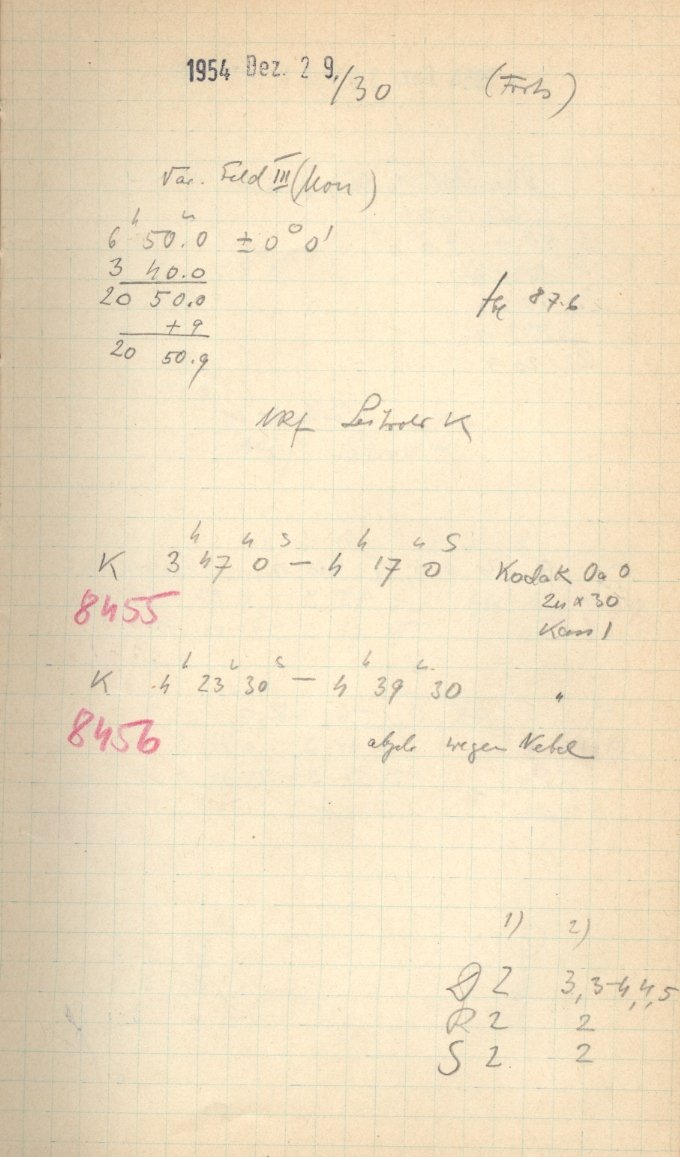 1954 Dez. 29./30 (Forts)
Var. Feld III (Mon)
6h 50.0 ± 0° 0'
3 40.0
20 50.0
+ 9
20 50.9
87.6
K
K 3h 47m 0s – 4h 17m 0s Kodak Oa O
8455
24 x 30
Kass 1
K 4h 23m 30s – 4h 39m 30 "
8456
abgebr wegen Nebel
1) 2)
D 2 3, 3-4, 4, 5
R 2 2
S 2 2